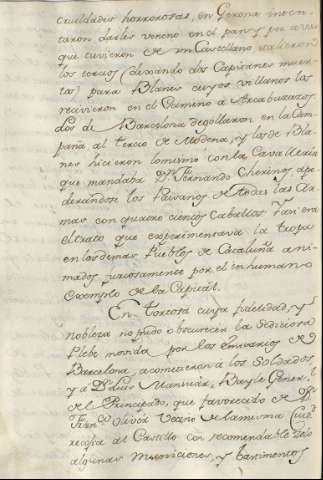 crueldades horrorosas, en Gerona inten
taron darles veneno en el pan, y por aviso
que tuvieron de un Castellano salieron
los tercios (dexando dos Capitanes muer
tos) para Blanes cuyos villanos los
recivieron en el Camino a Arcabuzazos
Los de Barcelona degollaron en la Cam
paña al tercio de Modena, y los de Bla
nes hicieron lo mismo con la Cavalleria
que mandaba Dn Fernando Cherinos ape
derandose los Paisanos de todas las Ar
mas con quatro cientos Caballos. Tan era
el trato que experimentava la tropa
en los demas Pueblos de Cataluña ani
mados furiosamente por el inhumano
exemplo de la Capital.
En Tortosa cuya fidelidad, y
nobleza no pudo obscurecer la Sediciosa
Plebe movida por los Emisarios de
Barcelona, acometieron a los Soldados,
y a Dn Luis Monsuar, Bayle Gener.l
del Principado, que favorecido de Dn
Fran.co Olivér Vecino de la misma Ciud.d
recogia al Castillo con recomendable zelo
algunas Municiones, y bastimentos